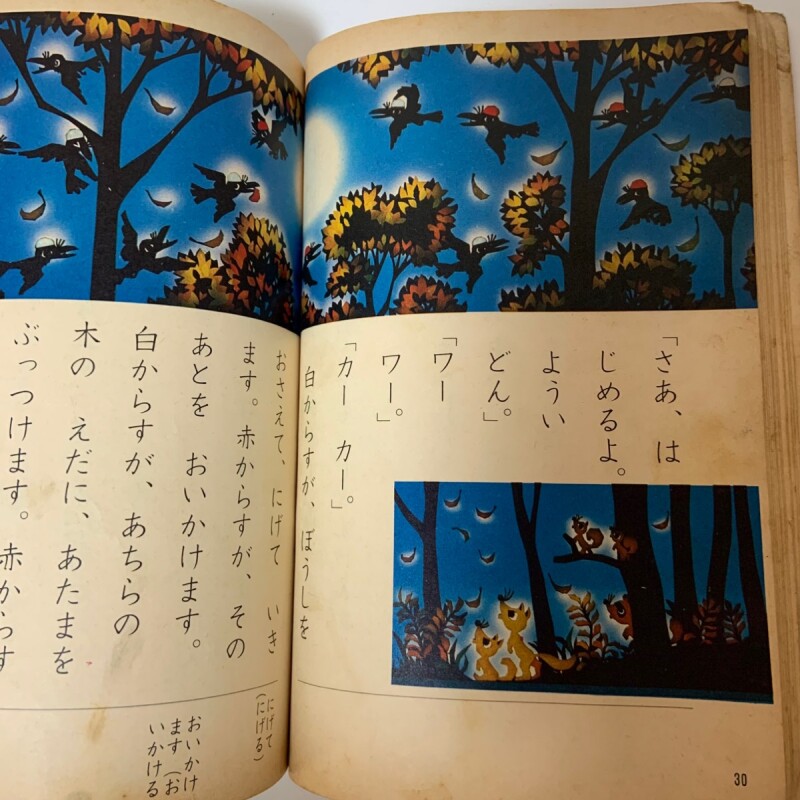 「さあ、は
じめるよ。
ようい
どん。」
「ワー
ワー。」
「カー　カー。」
白からすが、ぼうしを
おさえて、にげて　いき
ます。赤からすが、その
あとを　おいかけます。
白からすが、あちらの
木の　えだに、あたまを
ぶっつけます。赤からす
30
にげて
(にげる)
おいかけ
ます(お
いかける